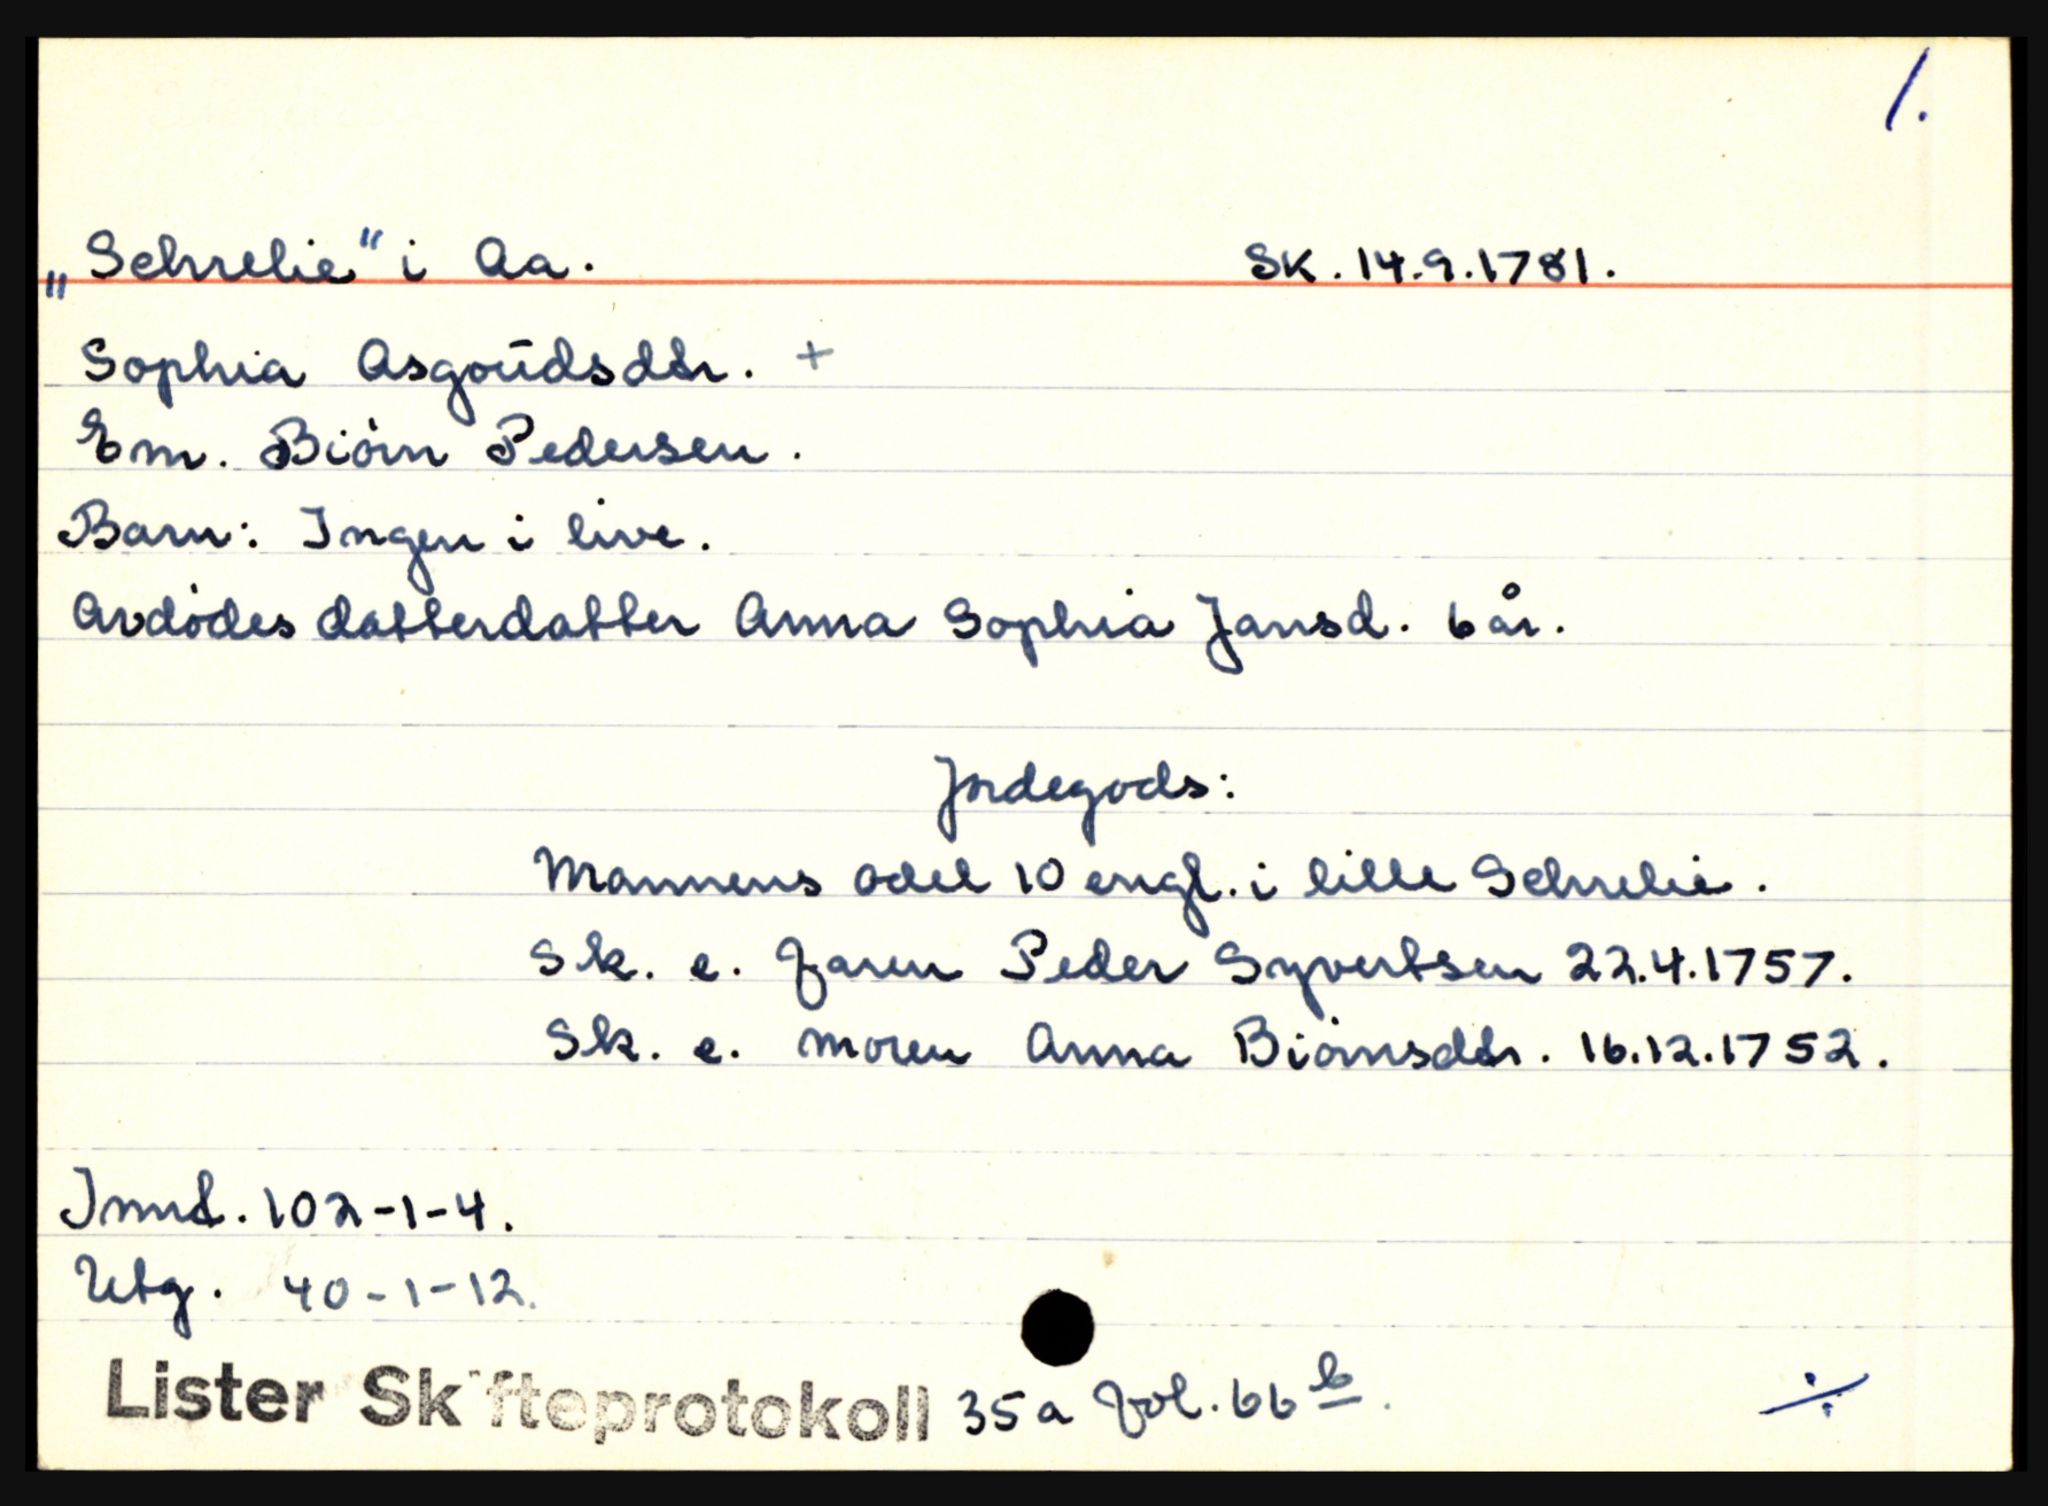 1.
„Schrelie" i Aa. SK. 14.9.1781.
Sophia Asgoŭdsdtr. +
Em. Biörn Pedersen.
Barn: Ingen i live.
Avdödes datterdatter Anna Sophia Jansd. 6 år.
Jordegods:
Mannens odel 10 engl. i lille Schrelie.
Sk. e. faren Peder Syvertsen 22.4.1757.
Sk. e. moren Anna Biörnsdtr. 16.12.1752.
Innt. 102-1-4.
Utg. 40-1-12.
Lister Skifteprotokoll 35a fol. 66 b.
÷